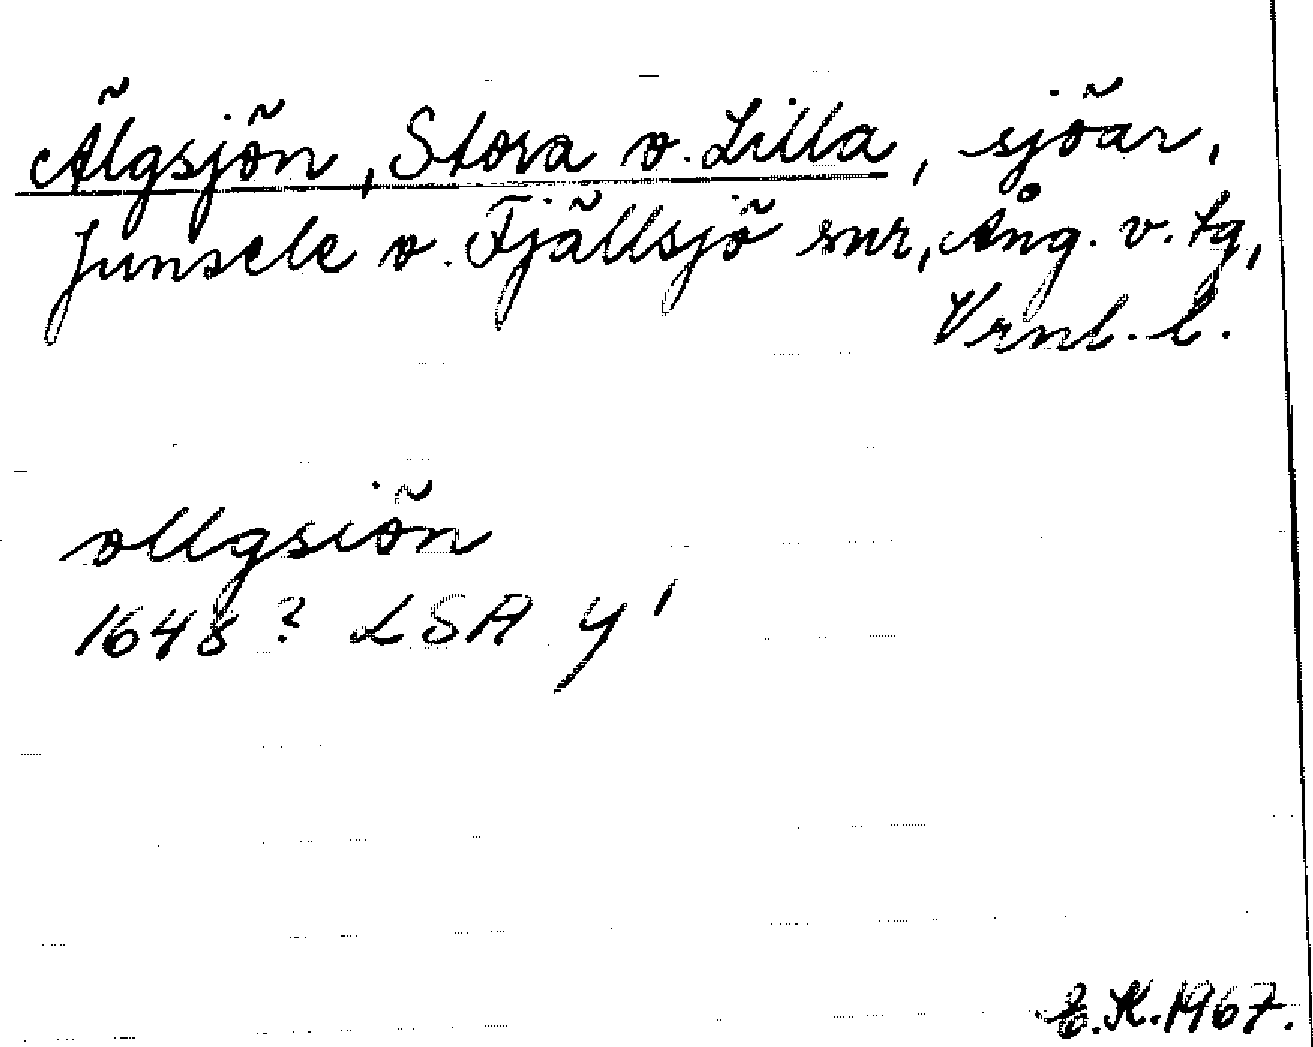 Älgsjön, Stora o. Lilla, sjöar,
Junsele o. Fjällsjö snr, Ång. v. tg,
Vrnl. l.
ollgsiön
1648? LSA Y 1
E.K. 1967.